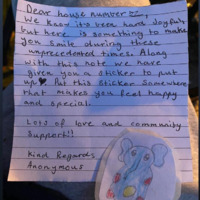 Dear house number
We know it's been hard
but here is something to make
you smile during these
unprecedented times. Along
with this note we have
given you a sticker to put
up♥ Put this sticker somewhere
that makes you feel happy
and special.
Lots of love and community
support!!
Kind Regards
Anonymous